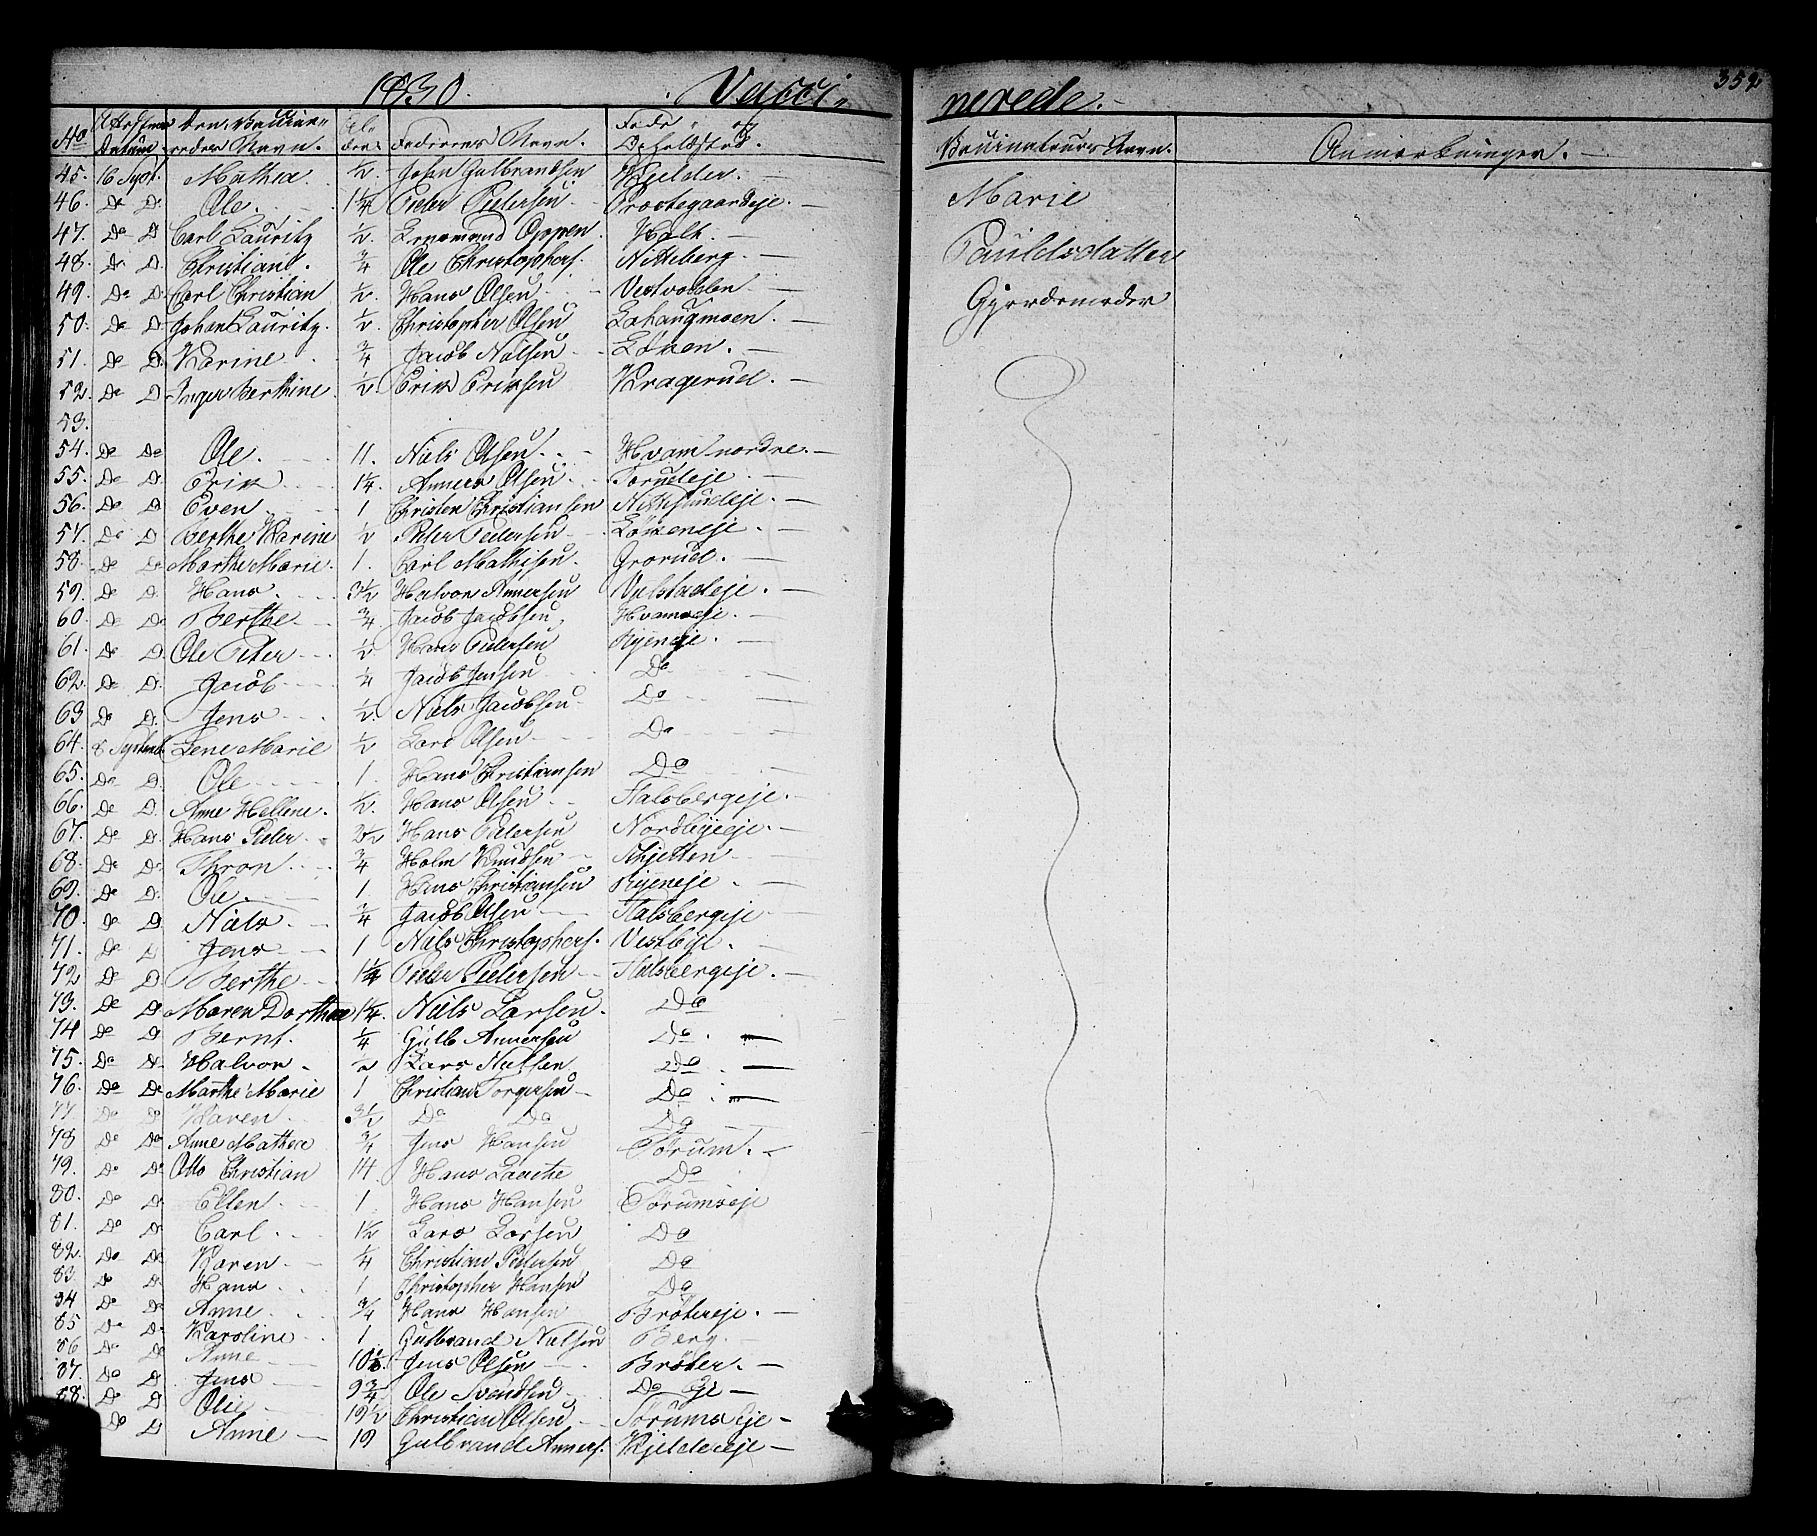 1830. Vacci-
No Attestens Datum. Den Vaccineredes Navn. Alder Faderens Navn. Føde- og Opholdsted.
45. 16 Sept. Mathea. 1/2 John Gulbrandsen Kjelder. —
46. Do D. Ole. 1 1/4 Peder Pedersen. Prostegaardeje. —
47. Do D Carl Lauritz 1/2. Oppen. Holt. —
48. Do D. Christiane. 3/4 Ole Christophers. Nitteberg. —
49. Do D. Carl Christian 1/2. Hans Olsen Vestvolden —
50. Do D. Johan Lauritz. 1/2 Christopher Olsen Lahaugmoen. —
51. Do D. Karine 3/4 Jacob Nilsen Løken. —
52. Do D Inger Berthine. 1/2 Erik Eriksen Kragerud. —
53.
54. Do Do Ole. 11. Niels Olsen. Hvam nordre. —
55. Do D. Erik 1 1/4. Anners Olsen Torudeje. —
56. Do D Even 1 Christen Christiansen Nittesundeje. —
57. Do D. Berthe Karine 1/2 Peter Pedersen Løkeneje. —
58. Do Do Marthe Marie. 1. Carl Mathisen. Grorud. —
59. Do D. Hans. 3 1/2 Halvor Annersen Vilstadeje. —
60. Do Do Berthe 3/4 Jacob Jacobsen. Hvamseje. —
61. Do D. Ole Peter 1/2 Hans Pedersen Ryeneje. —
62. Do D. Jacob 1/4 Jacob Jensen Do
63 Do D. Jens 1/2. Niels Jacobsen Do
64. 8 Septemb. Lene Marie 1/2 Lars Olsen Do
65. Do D. Ole 1. Hans Christiansen Do —
66. Do D. Anne Hellene. 1/2. Hans Olsen Halsbergeje. —
67. Do D. Hans Peter 3 1/2 Hans Pedersen Nordbyeje. —
68. Do D. Thron 3/4 Holm Knudsen Skjetten
69. Do D. Ole 1 Hans Christiansen Ryeneje . —
70. Do D Niels 3/4 Jacob Olsen Halsbergeje —
71. Do D Jens 1 Niels Christophers. Vestbye. —
72 Do D Berthe 1 1/4 Peder Pedersen Halsbergeje. —
73. Do D Maren Dorthea 1 1/4. Niels Larsen. Do
74 Do D Bernt. 1/4 Gulb Annersen Do. —
75. Do D. Halvor. 1/2 Lars Nielsen Do . —
76. Do Do Marthe Marie 1 Christian Torgersen Do . —
77. Do Do Karen 3 1/2 Do Do Do —
78 Do Do Anne Mathea 3/4 Jens Hansen Sørum. —
79. Do D. Otto Christian 14 Hans Laache Do
80. Do D. Ellen 1. Hans Hansen Sørumseje
81. Do D. Carl. 1 1/2 Lars Larsen Do
82. Do Do Karen 1/4 Christian Pedersen Do
83 Do D. Hans 1 Christopher Hansen Do
84 Do Do Anne. 3/4 Hans Hansen Brøtereje. —
85 Do Do Karoline 1 Gulbrand Nielsen Berg. —
86 Do Do Anne 10 1/2. Jens Olsen Brøter. —
87. Do D Jens 9 3/4 Ole Svendsen Do Eje —
88. Do D Olie 19 1/2 Christian Olsen Sørums Eje —
Do D Anne 19 Gulbrand Anners. Kjeldereje —
nerede. —
352
Vaccinateurs Navn. Anmerkninger. —
Marie
Pauldsdatter
Gjordemoder